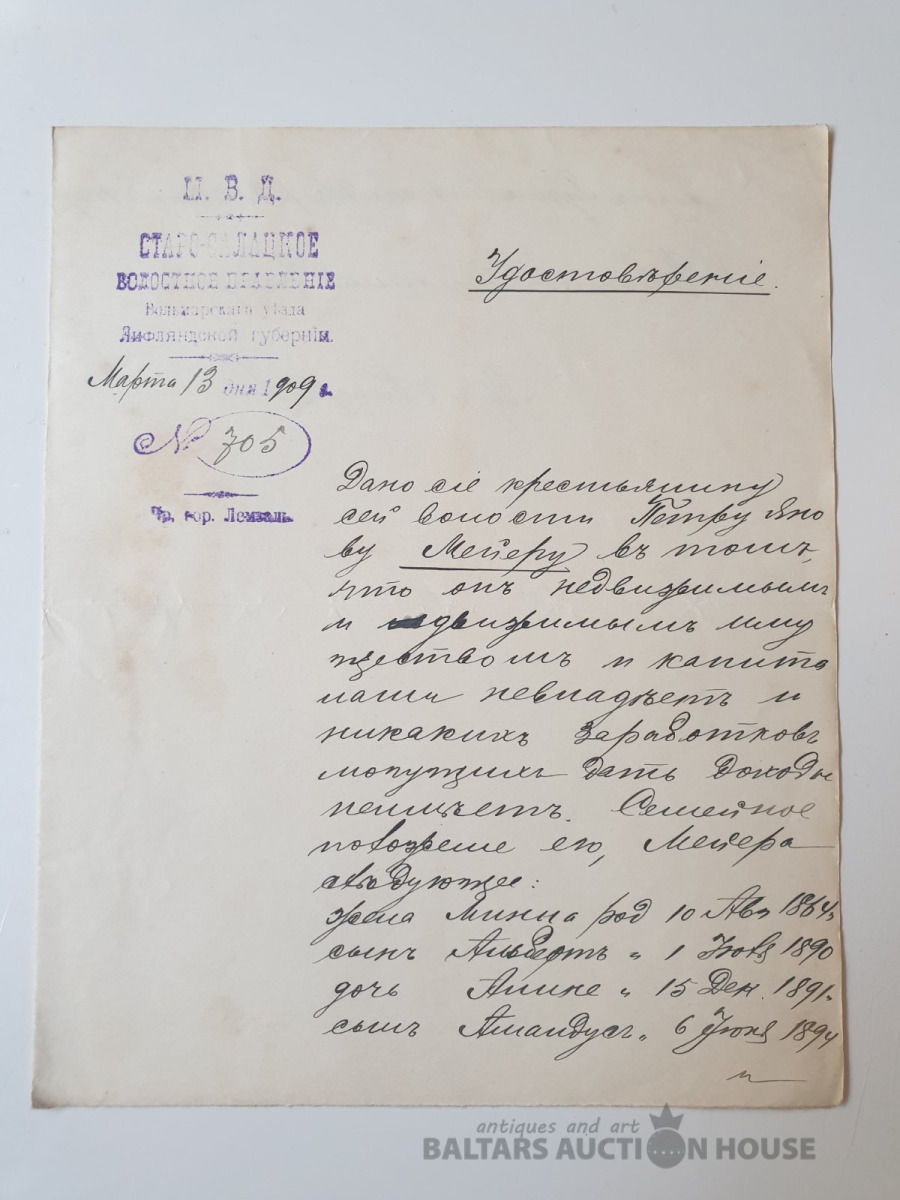 М. В. Д.
СТАРО-САЛАЦКОЕ
ВОЛОСТНОЕ ПРАВЛЕНІЕ
Вольмарскаго уѣзда
Лифляндской губерніи.
Марта 13 дня 1909 г.
№ 705
Чр. гор. Лемзаль.
Удостовѣреніе.
Дано сіе крестьянину
сей волости Петру Яно
ву Мейеру въ томъ,
что онъ недвижимымъ
и движимымъ иму
ществомъ и капита
лами невладѣетъ и
никакихъ заработковъ
могущихъ дать доходы
неимѣетъ. Семейное
его, Мейера
слѣдующее:
жена Минна род 10 Авг 1864 г
сынъ Альбертъ „ 1 1890
дочь Алине „ 15 Дек. 1891 г
сынъ Амандусъ „ 6 Іюня 1894
и
antiques and art
BALTARS AUCTION HOUSE